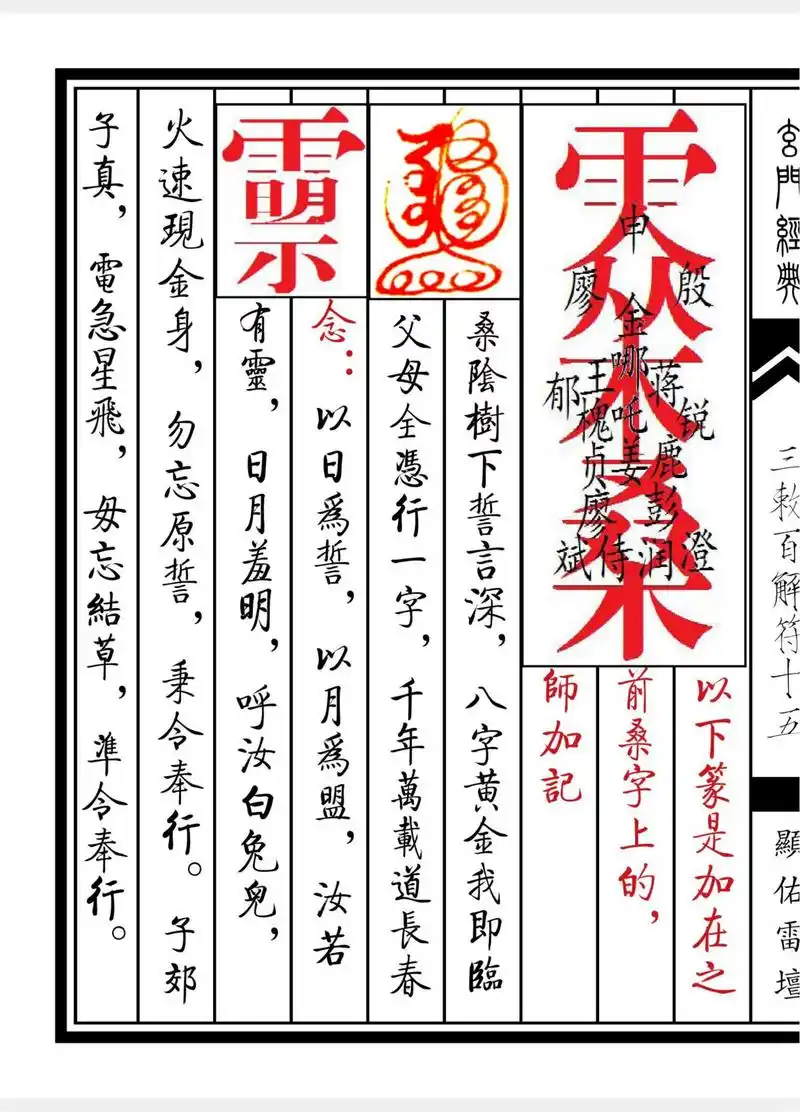 玄門經典
三敕百解符十五
顯佑雷壇
申
殷
廖
金哪吒姜
蒋
王
郁
锐
槐
鹿
贞
彭
廖
澄
润
侍
斌
桑
以下篆是加在之
前桑字上的，
師加記
桑陰樹下誓言深，八字黄金我即臨
父母全憑行一字，千年萬載道長春
念：以日爲誓，以月爲盟，汝若
有靈，日月羞明，呼汝白兔兒，
火速現金身，勿忘原誓，秉令奉行。子郊
子真，電急星飛，毋忘結草，準令奉行。